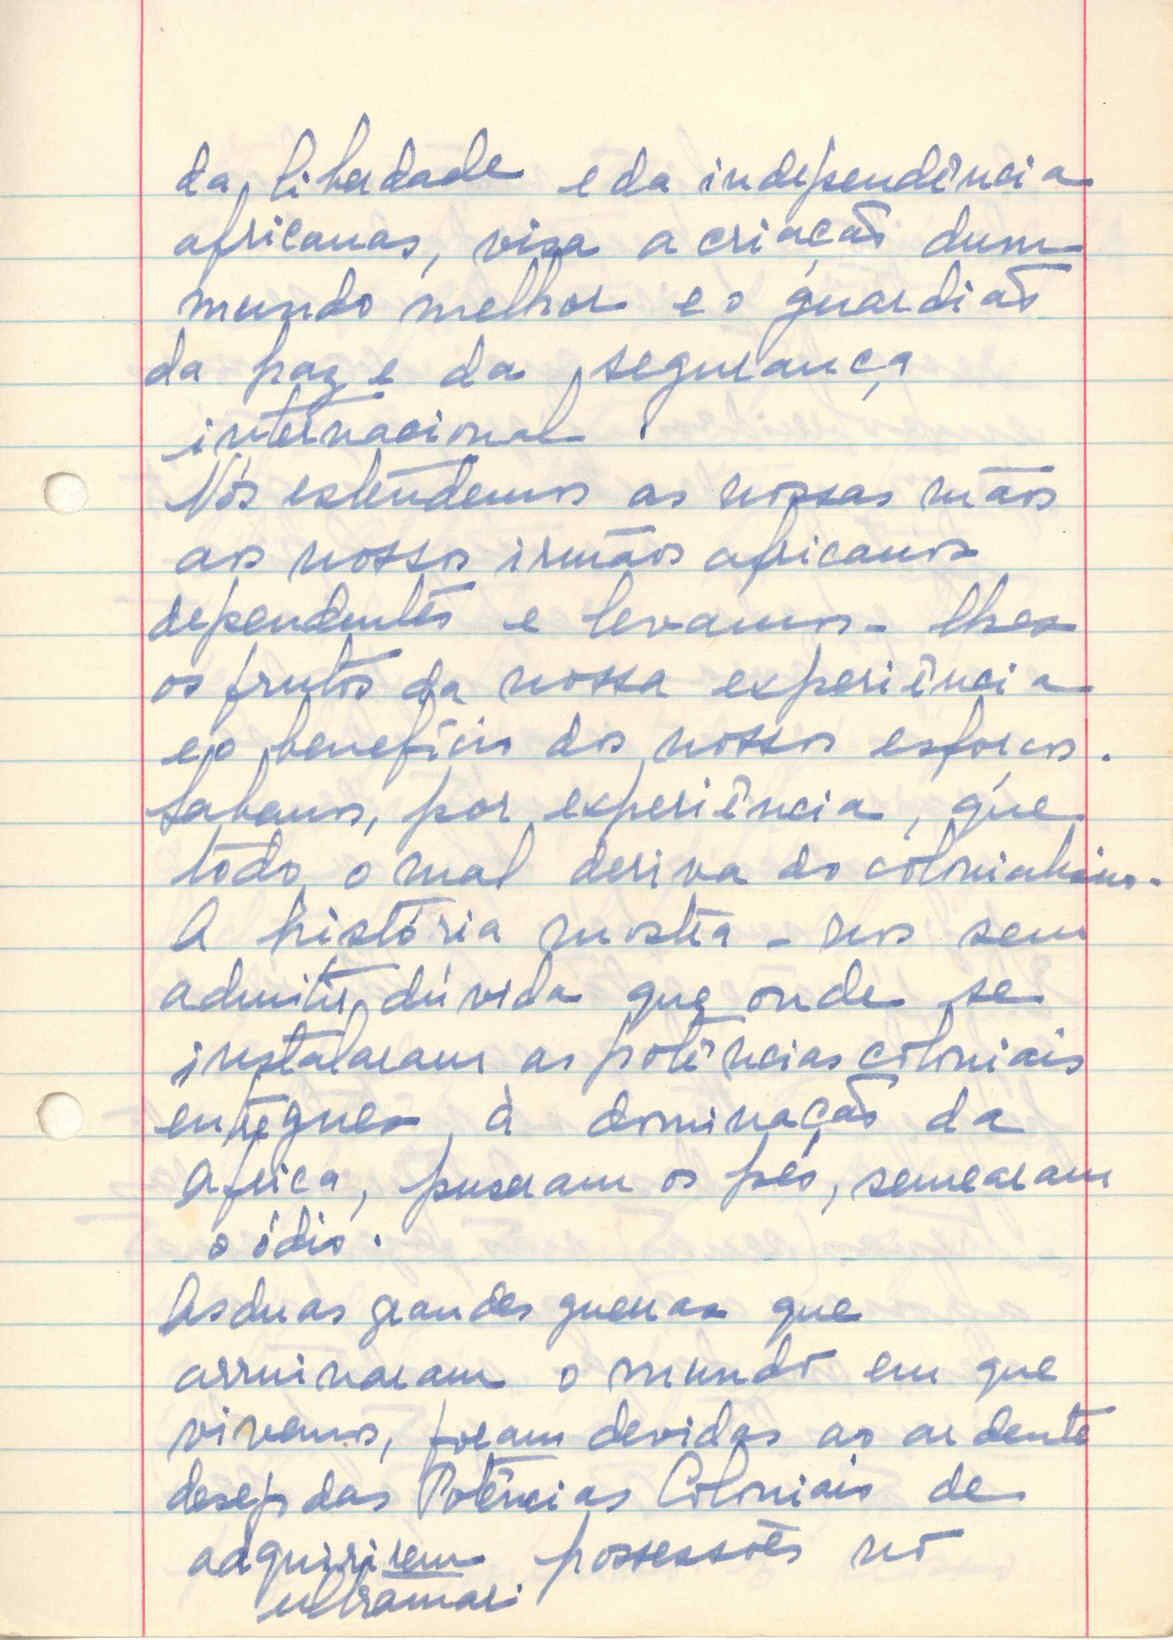 da liberdade e da independência
africanas, visa a criação dum
mundo melhor e o guardião
da paz e da segurança
internacional.
Nós estendemos as nossas mãos
aos nossos irmãos africanos
dependentes e levamos-lhes
os frutos da nossa experiência
e o benefício dos nossos esforços.
Sabemos, por experiência, que
todo o mal deriva do colonialismo.
A história mostra-nos sem
admitir dúvida que onde se
instalaram as potências coloniais
entregues à dominação da
Africa, puseram os pés, semearam
o ódio.
As duas grandes guerras que
arruinaram o mundo em que
vivemos, foram devidas ao ardente
desejo das Potências Coloniais de
adquirirem possessões no
ultramar;